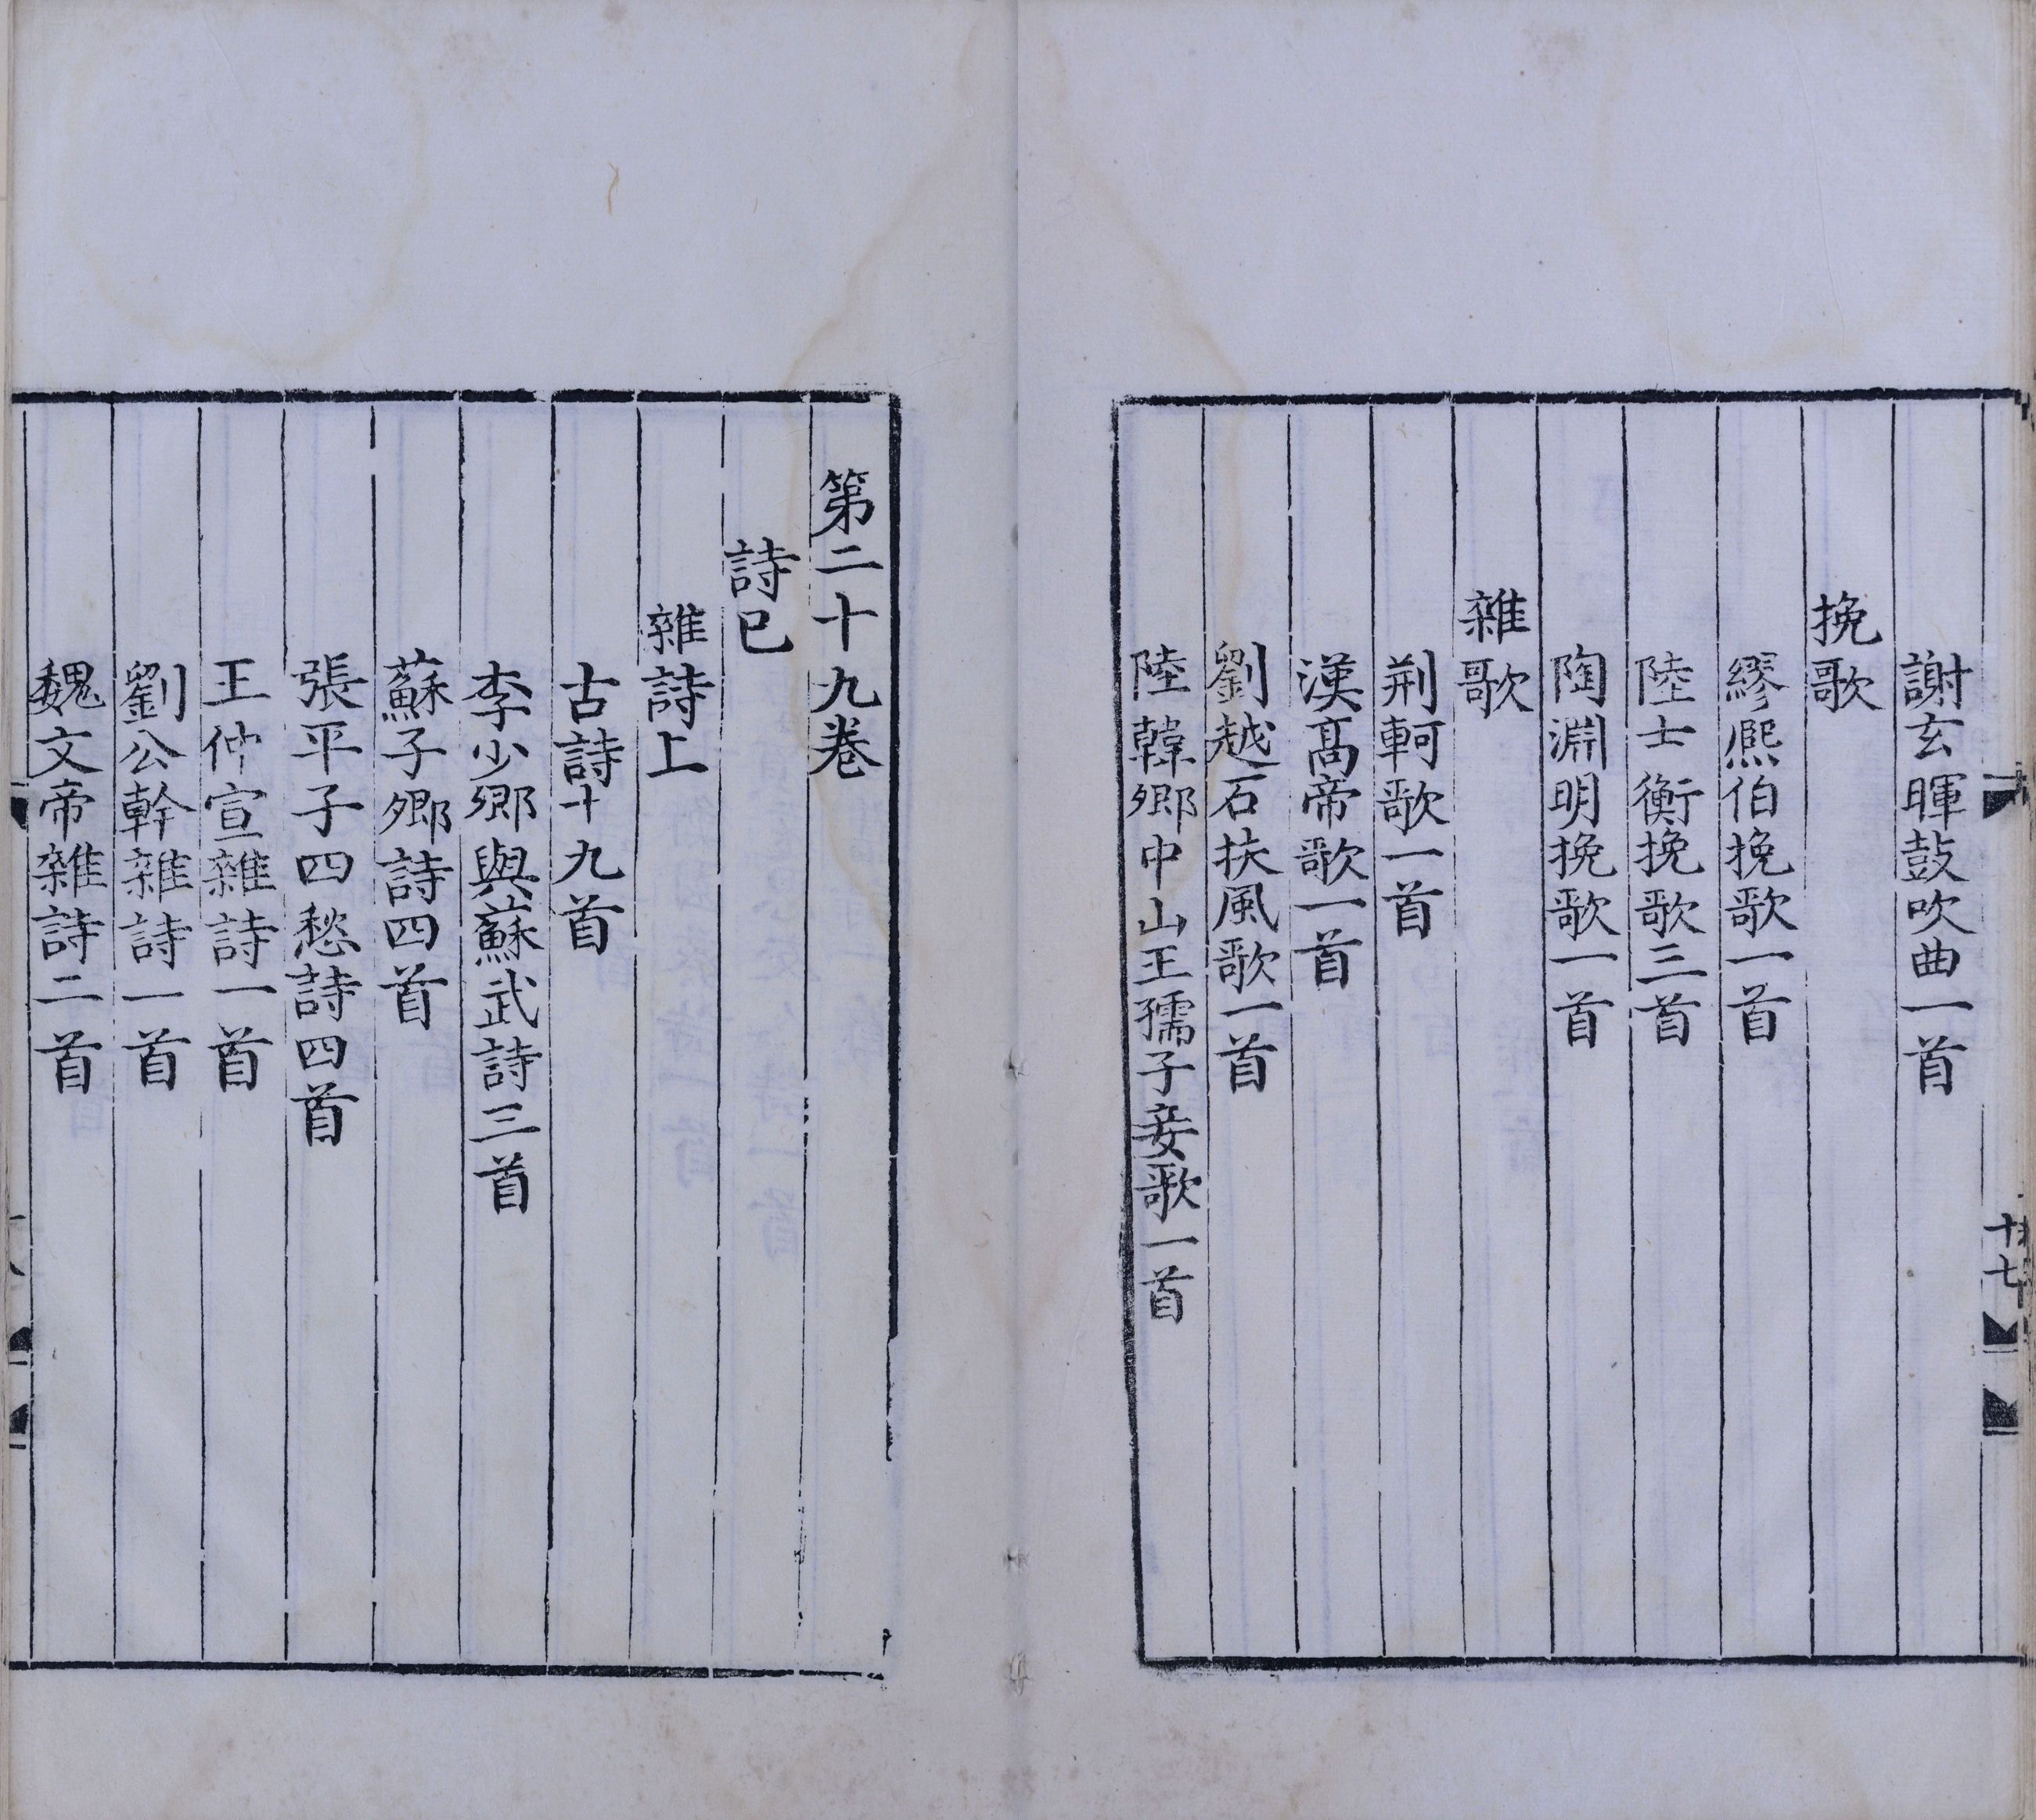 謝玄暉鼓吹曲一首
挽歌
繆熈伯挽歌一首
陸士衡挽歌三首
陶淵明挽歌一首
雜歌
荆軻歌一首
漢髙帝歌一首
劉越石扶風歌一首
陸韓郷中山王孺子妾歌一首
十七
第二十九卷
詩已
雜詩上
古詩十九首
李少郷與蘇武詩三首
蘇子郷詩四首
張平子四愁詩四首
王仲宣雜詩一首
劉公幹雜詩一首
魏文帝雜詩二首